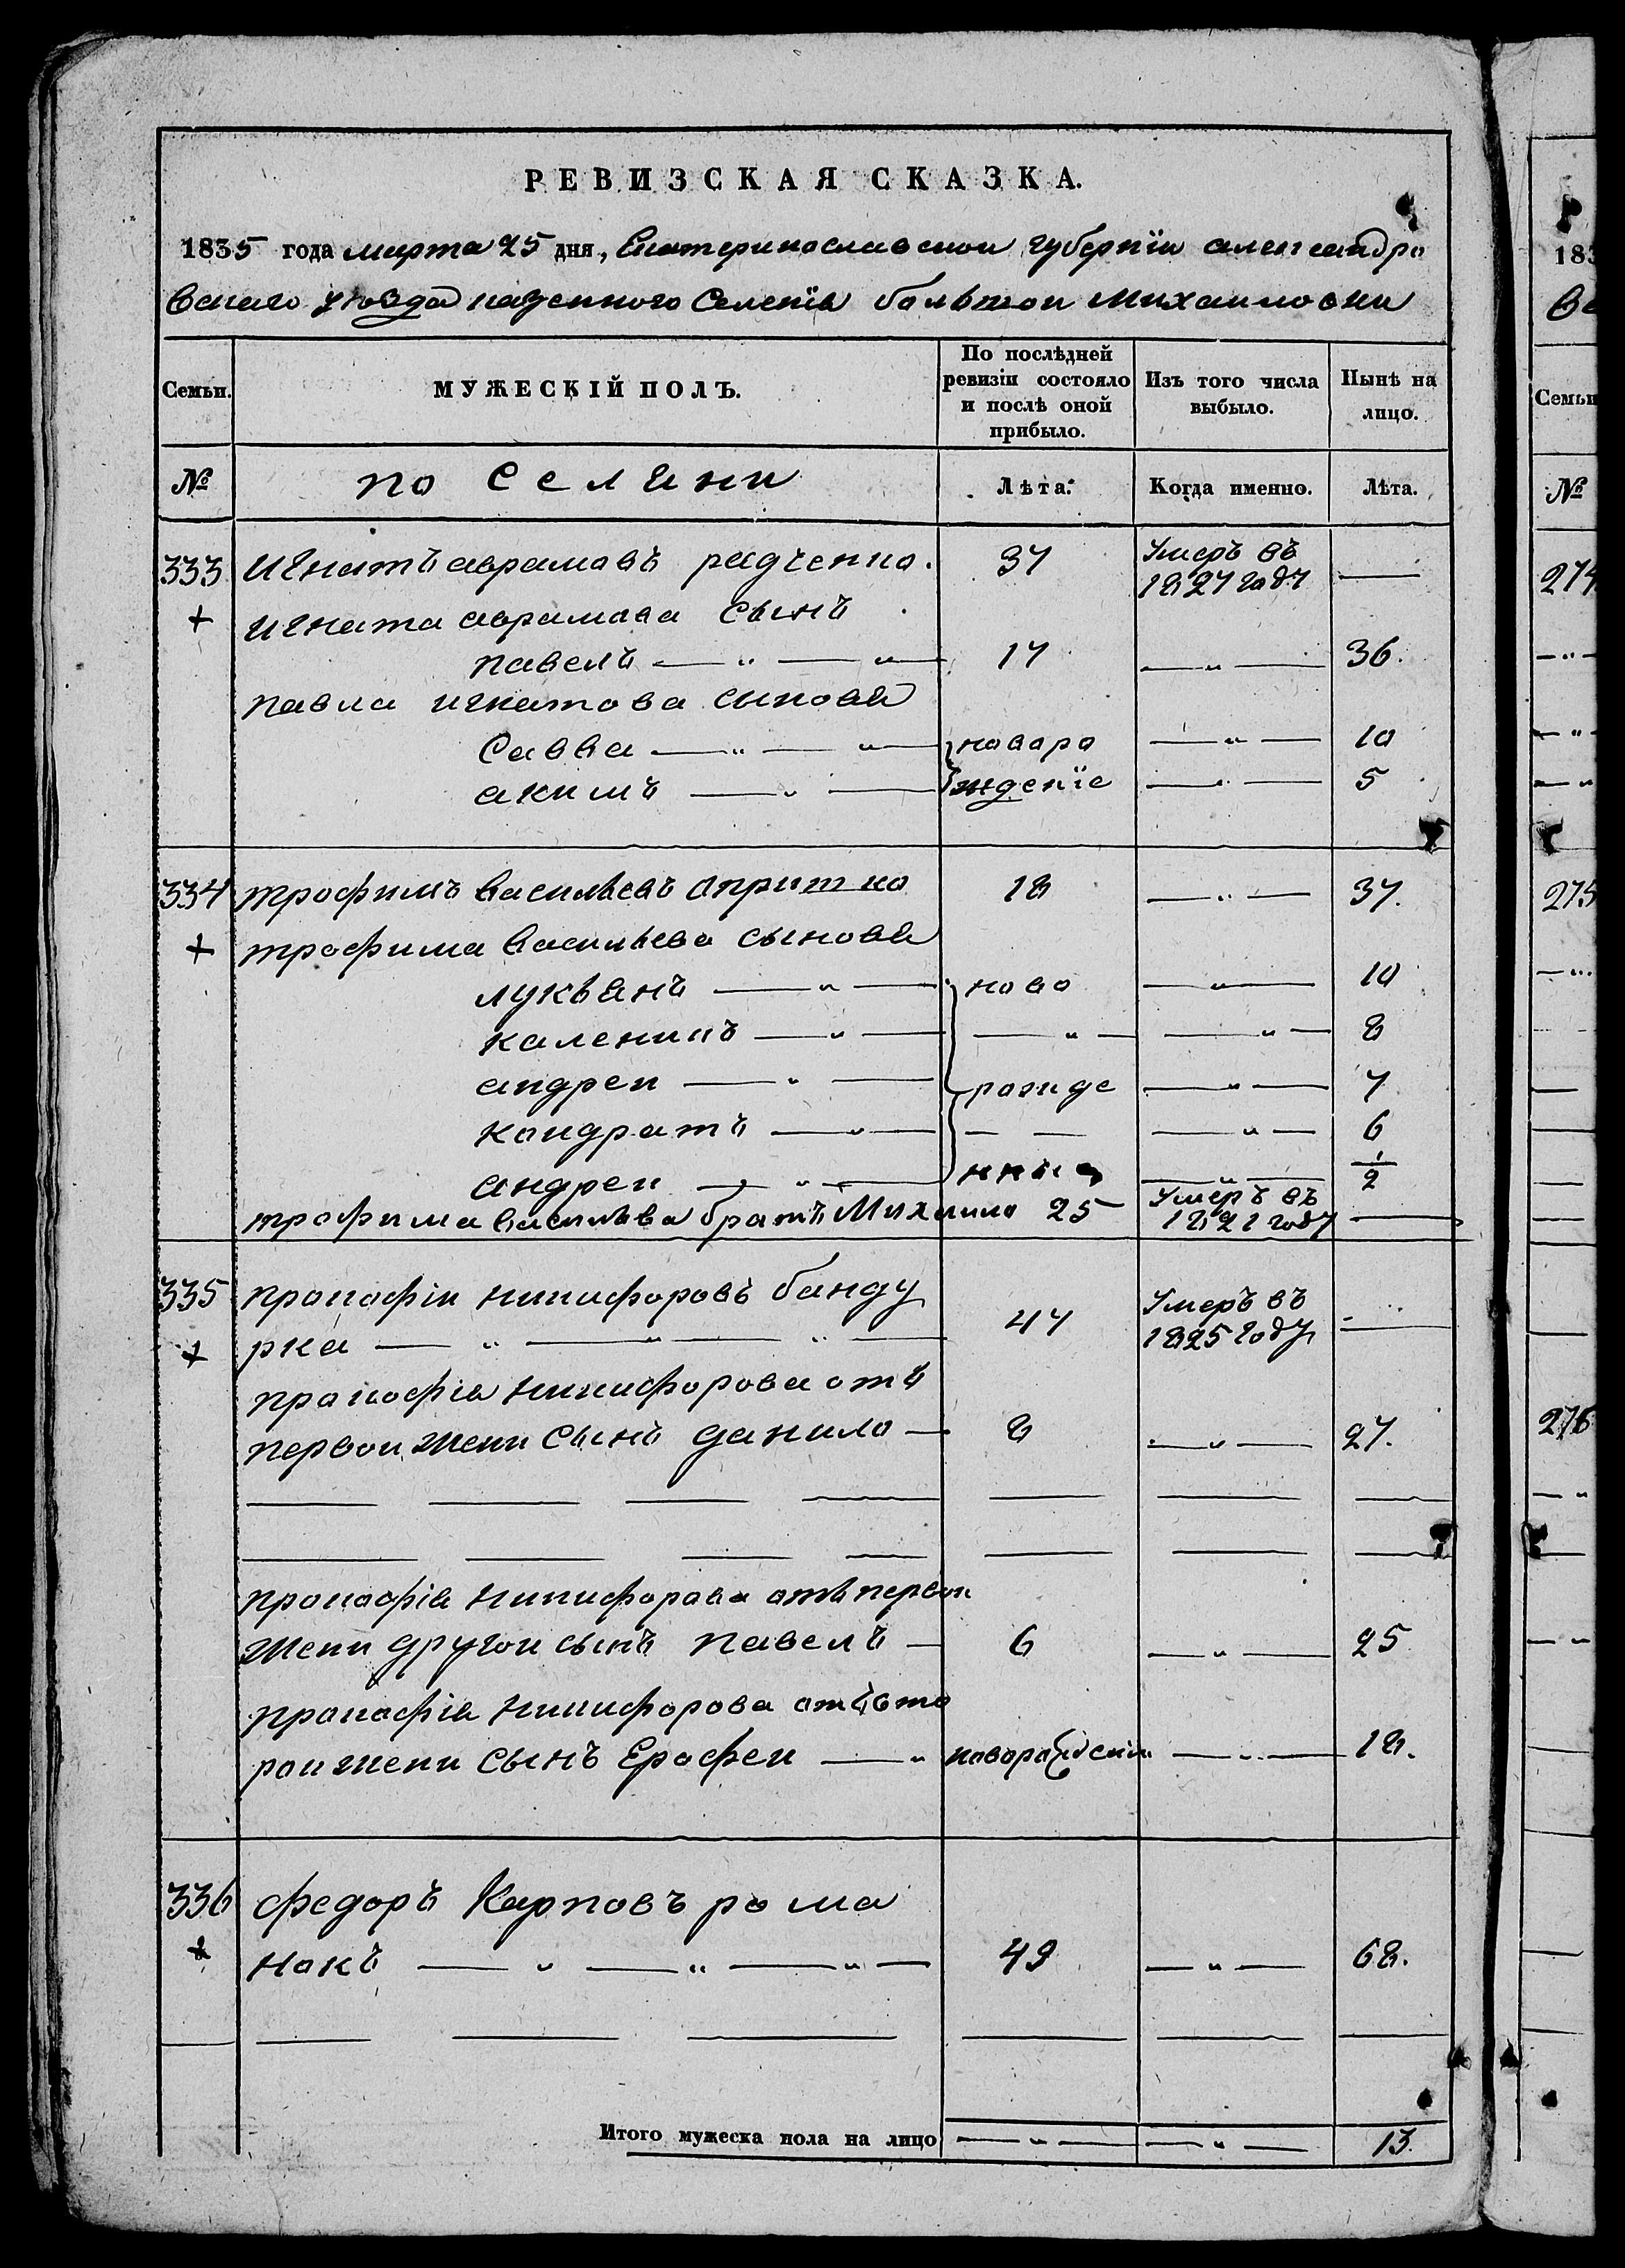 РЕВИЗСКАЯ СКАЗКА.
1835 года марта 25 дня, Екатеринославскои губернїи александро
вскаго уѣзда казенного Селенїя большои михаиловки
Семьи. МУЖЕСКІЙ ПОЛЪ. По послѣдней ревизіи состояло и послѣ оной прибыло. Изъ того числа выбыло. Нынѣ на лицо.
№ по Селяни Лѣта. Когда именно. Лѣта.
333 игнатъ аврамовъ радченко. 37 Умеръ въ 1827 году —
+ игната аврамова сынъ
павелъ — „ — „ — 17 — „ — 36.
павла игнатова сыновя
Савва — „ — „ — новоро — „ — 10
акимъ — „ — ждение — „ — 5
334 трофимъ васильевъ опришко 18 — „ — 37.
+ трофима васильева сыновя
лукьянъ — „ — ново — „ — 10
каленикъ — „ — — „ — — „ — 8
андреи — „ — рожде — „ — 7
кондратъ — „ — — — — „ — 6
андреи — „ — нніе — „ — 1/2
трофима васильва братъ Михаило 25 Умеръ въ 1821 году —
335 прокофіи никифоровъ банду
+ рка — „ — „ — „ — 47 Умеръ въ 1825 году —
прокофія никифорова отъ
первои жени сынъ данило — 8 — „ — 27.
прокофія никифорова отъ первои
жени другои сынъ павелъ — 6 — „ — 25
прокофія никифорова отъ вто
рои жени сынъ Ерофеи — „ новорожденіи — „ — 18.
336 федоръ Карповъ рома
+ нокъ — „ — „ — „ — 49 — „ — 68.
Итого мужеска пола на лицо — „ — — „ — 13.
183
Ве
Семьи
№
274
275
276